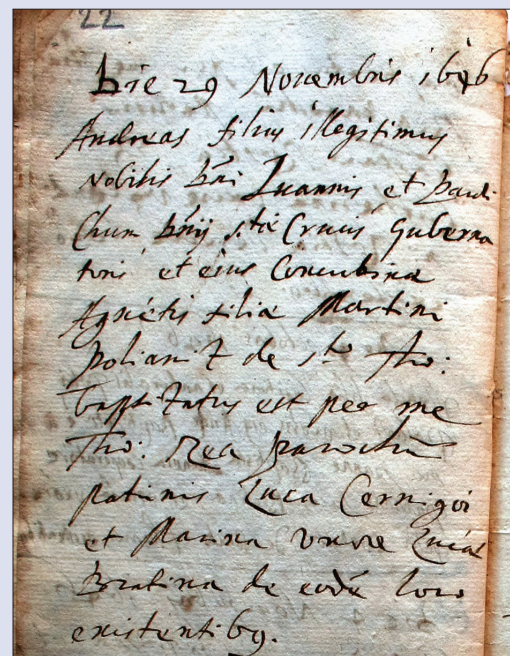 22
Die 29 Novembris 1696
Andreas filius illegitimus
Nobilis Dni Ioannis et
Dnij Stae Crucis Guberna
toris et eius Concubinae
Agnetis filia Martini
Poliani de Sto Tho:
baptizatus est per me
Tho: Rea parochu
patrinis Luca Cernigoi
et Marina uxore Lucae
Bratina de eode loco
existentib9.